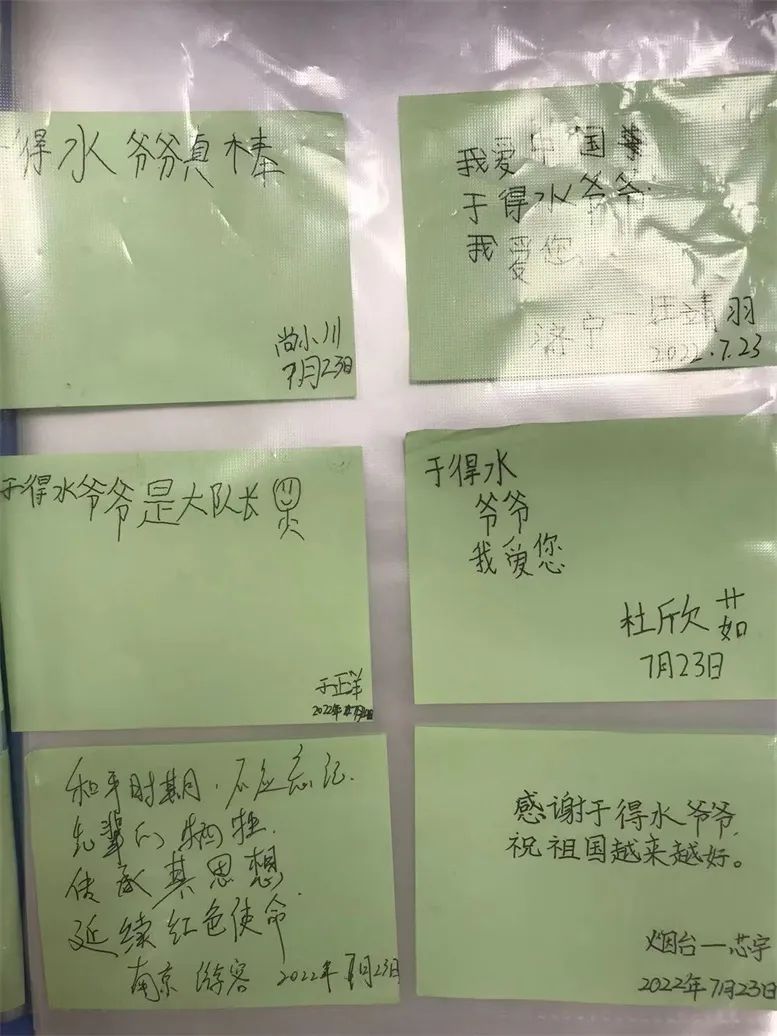 得水爷爷真棒
尚小川
7月23日
我爱中国
于得水爷爷
我爱您
济宁一 靖羽
2022.7.23
于得水爷爷是大队长
于正洋
2022年7月
于得水
爷爷
我爱您
杜欣茹
7月23日
和平时期，不应忘记
先辈们牺牲.
传承其思想
延续红色使命
南京游客 2022年7月23日
感谢于得水爷爷，
祝祖国越来越好。
烟台一芯宇
2022年7月23日